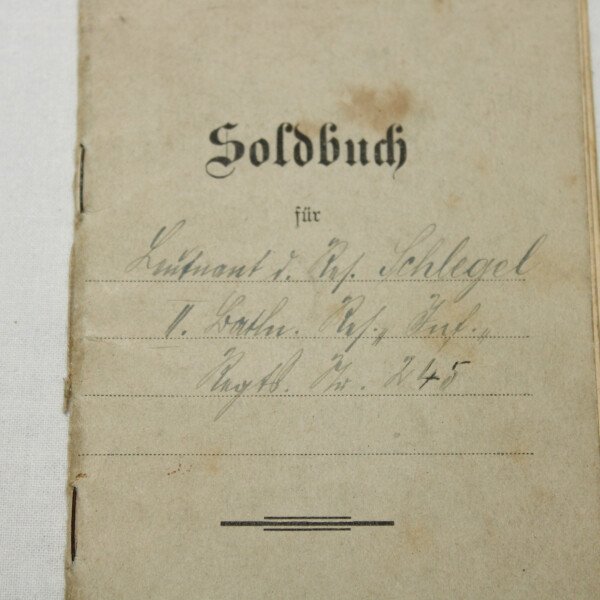 Soldbuch
für
Leutnant d. Res. Schlegel
II. Batln. Res., Inf.,
Regts. Nr. 245